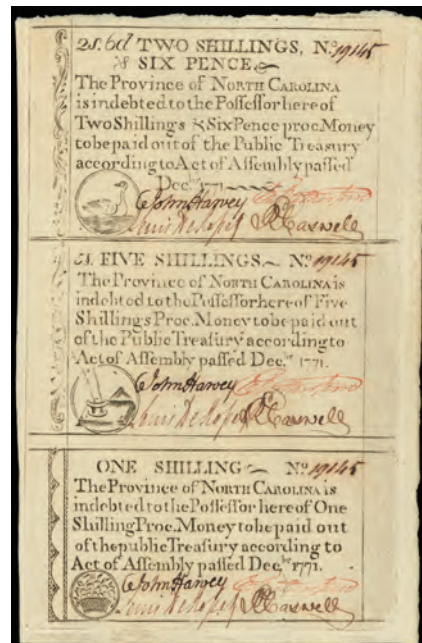 2s. 6d TWO SHILLINGS, No. 19145
& SIX PENCE
The Province of NORTH CAROLINA
is indebted to the Poſſeſſor here of
Two Shillings & Six Pence proc. Money
to be paid out of the Public Treasury
according to Act of Aſſembly paſſed
Decbr. 1771
John Harvey
Lewis De Roſset RCaswell
5s. FIVE SHILLINGS No. 19145
The Province of NORTH CAROLINA is
indebted to the Poſſeſſor here of Five
Shillings Proc. Money to be paid out
of the Public Treaſury according to
Act of Aſſembly paſſed Decbr. 1771.
John Harvey
Lewis De Roſset RCaswell
ONE SHILLING No. 19145
The Province of NORTH CAROLINA is
indebted to the Poſſeſſor here of One
Shilling Proc. Money to be paid out
of the public Treaſury according to
Act of Aſſembly paſſed Decbr. 1771.
John Harvey
Lewis De Roſset RCaswell